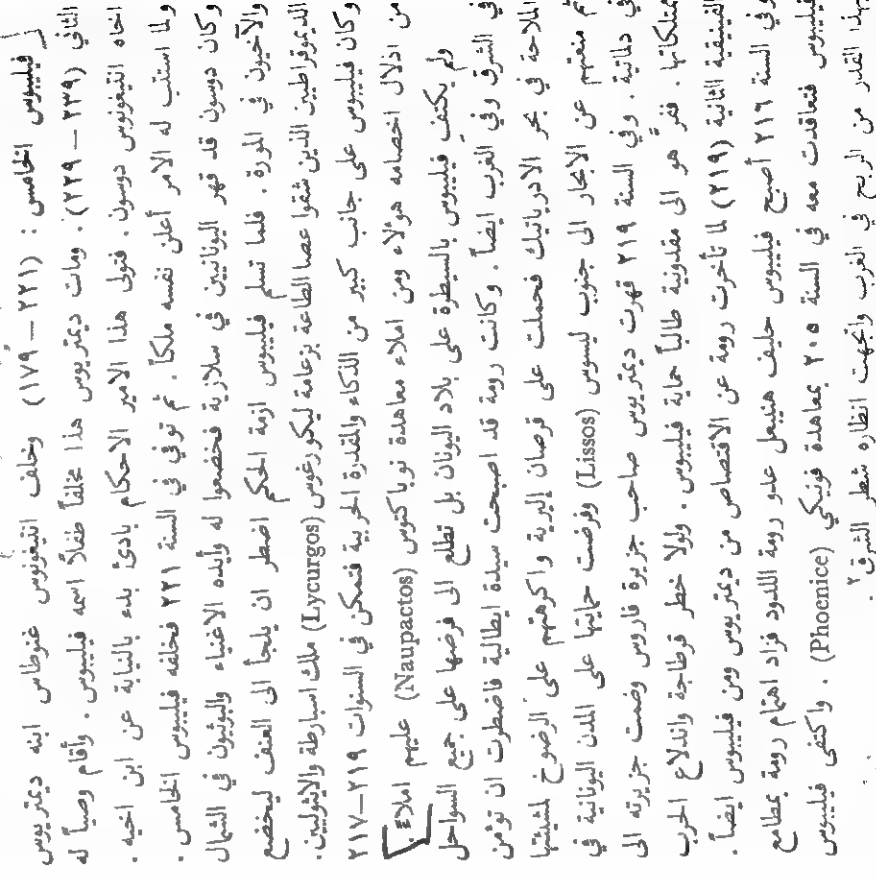 فيليبوس الخامس : (٢٢١ – ١٧٩) وخلف انتيغونوس غنوطاس ابنه ديمتريوس
الثاني (٢٣٩ – ٢٢٩) . ومات ديمتريوس هذا مخلفاً طفلاً اسمه فيليبوس . وأقام وصياً له
اخاه انتيغونوس دوسون . فتولى هذا الامير الاحكام بادئ بدء بالنيابة عن ابن اخيه .
ولما استتب له الامر أعلن نفسه ملكاً . ثم توفي في السنة ٢٢١ فخلفه فيليبوس الخامس .
وكان دوسون قد قهر اليونانيين في سلازية فخضعوا له وأيده الاغنياء والبوثيون في الشمال
والآخيون في المورة . فلما تسلم فيليبوس ازمة الحكم اضطر ان يلجأ الى العنف ليخضع
الديموقراطيين الذين شقوا عصا الطاعة بزعامة ليكورغوس (Lycurgos) ملك اسبارطة والايثوليين .
وكان فيليبوس على جانب كبير من الذكاء والمقدرة الحربية فتمكن في السنوات ٢١٩–٢١٧
من اذلال اخصامه هؤلاء ومن املاء معاهدة نوباكتوس (Naupactos) عليهم املاءً .
ولم يكتفِ فيليبوس بالسيطرة على بلاد اليونان بل تطلع الى فرضها على جميع السواحل
في الشرق وفي الغرب ايضاً . وكانت رومة قد اصبحت سيدة ايطالية فاضطرت ان تؤمن
الملاحة في بحر الادرياتيك فحملت على قرصان إليرية واكرهتهم على الرضوخ لمشيئتها
ثم منعتهم عن الابحار الى جنوب ليسوس (Lissos) وفرضت حمايتها على المدن اليونانية في
في دلماتية . وفي السنة ٢١٩ قهرت ديمتريوس صاحب جزيرة فاروس وضمت جزيرته الى
ممتلكاتها . ففرَّ هو الى مقدونية طالباً حماية فيليبوس . ولولا خطر قرطاجة واندلاع الحرب
الفينيقية الثانية (٢١٩) لما تأخرت رومة عن الاقتصاص من ديمتريوس ومن فيليبوس ايضاً .
وفي السنة ٢١٦ أصبح فيليبوس حليف هنيبعل عدو رومة اللدود فزاد اهتمام رومة بمطامع
فيليبوس فتعاقدت معه في السنة ٢٠٥ بمعاهدة فونيكي (Phoenice) . واكتفى فيليبوس
بهذا القدر من الربح في الغرب واتجهت انظاره شطر الشرق ٢ .